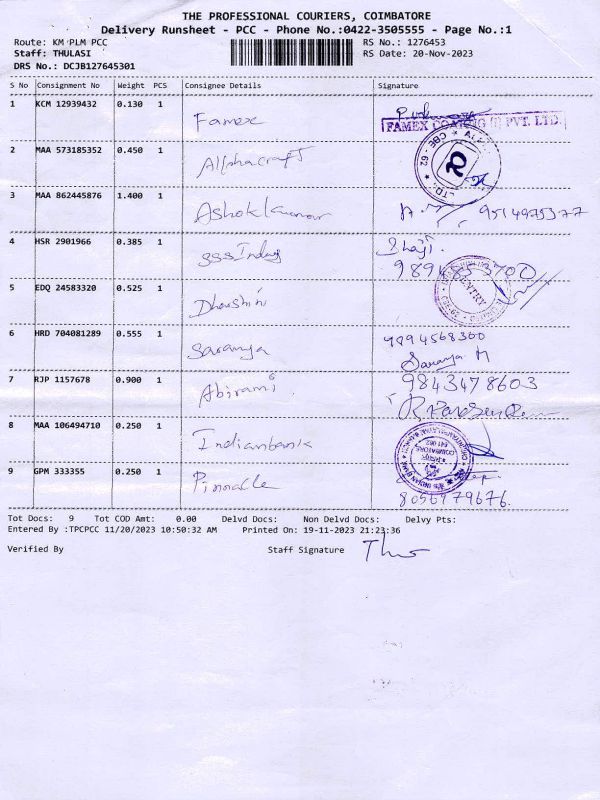 THE PROFESSIONAL COURIERS, COIMBATORE
Delivery Runsheet - PCC - Phone No.:0422-3505555 - Page No.:1
Route: KM PLM PCC RS No.: 1276453
Staff: THULASI RS Date: 20-Nov-2023
DRS No.: DCJB127645301
S No Consignment No Weight PCS Consignee Details Signature
1 KCM 12939432 0.130 1 Famex
FAMEX COATING (I) PVT. LTD.
2 MAA 573185352 0.450 1 Allphacraft CBE - 62
3 MAA 862445876 1.400 1 Ashokkumar 9514975377
4 HSR 2901966 0.385 1 SSS Indus Shaji.
9894853700
5 EDQ 24583320 0.525 1 Dharshini ENTRY
6 HRD 704081289 0.555 1 Saranya 9994568300
Saranya M
7 RJP 1157678 0.900 1 Abirami 9843478603
8 MAA 106494710 0.250 1 Indianbank COIMBATORE 641 062
9 GPM 333355 0.250 1 Pinnacle
8056779676.
Tot Docs: 9 Tot COD Amt: 0.00 Delvd Docs: Non Delvd Docs: Delvy Pts:
Entered By :TPCPCC 11/20/2023 10:50:32 AM Printed On: 19-11-2023 21:23:36
Verified By Staff Signature